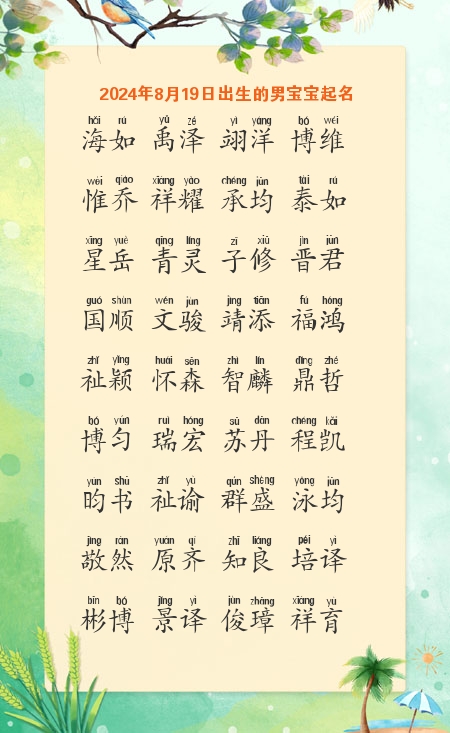 2024年8月19日出生的男宝宝起名
hǎi rú yǔ zé yì yáng bó wéi
海如 禹泽 翊洋 博维
wéi qiáo xiáng yào chéng jūn tài rú
惟乔 祥耀 承均 泰如
xīng yuè qīng líng zǐ xiū jìn jūn
星岳 青灵 子修 晋君
guó shùn wén jùn jìng tiān fú hóng
国顺 文骏 靖添 福鸿
zhǐ yǐng huái sēn zhì lín dǐng zhé
祉颖 怀森 智麟 鼎哲
bó yún ruì hóng sū dān chéng kǎi
博匀 瑞宏 苏丹 程凯
yún shū zhǐ yù qún shèng yǒng jūn
昀书 祉谕 群盛 泳均
jìng rán yuán qí zhī liáng péi yì
敬然 原齐 知良 培译
bīn bó jǐng yì jùn zhāng xiáng yù
彬博 景译 俊璋 祥育